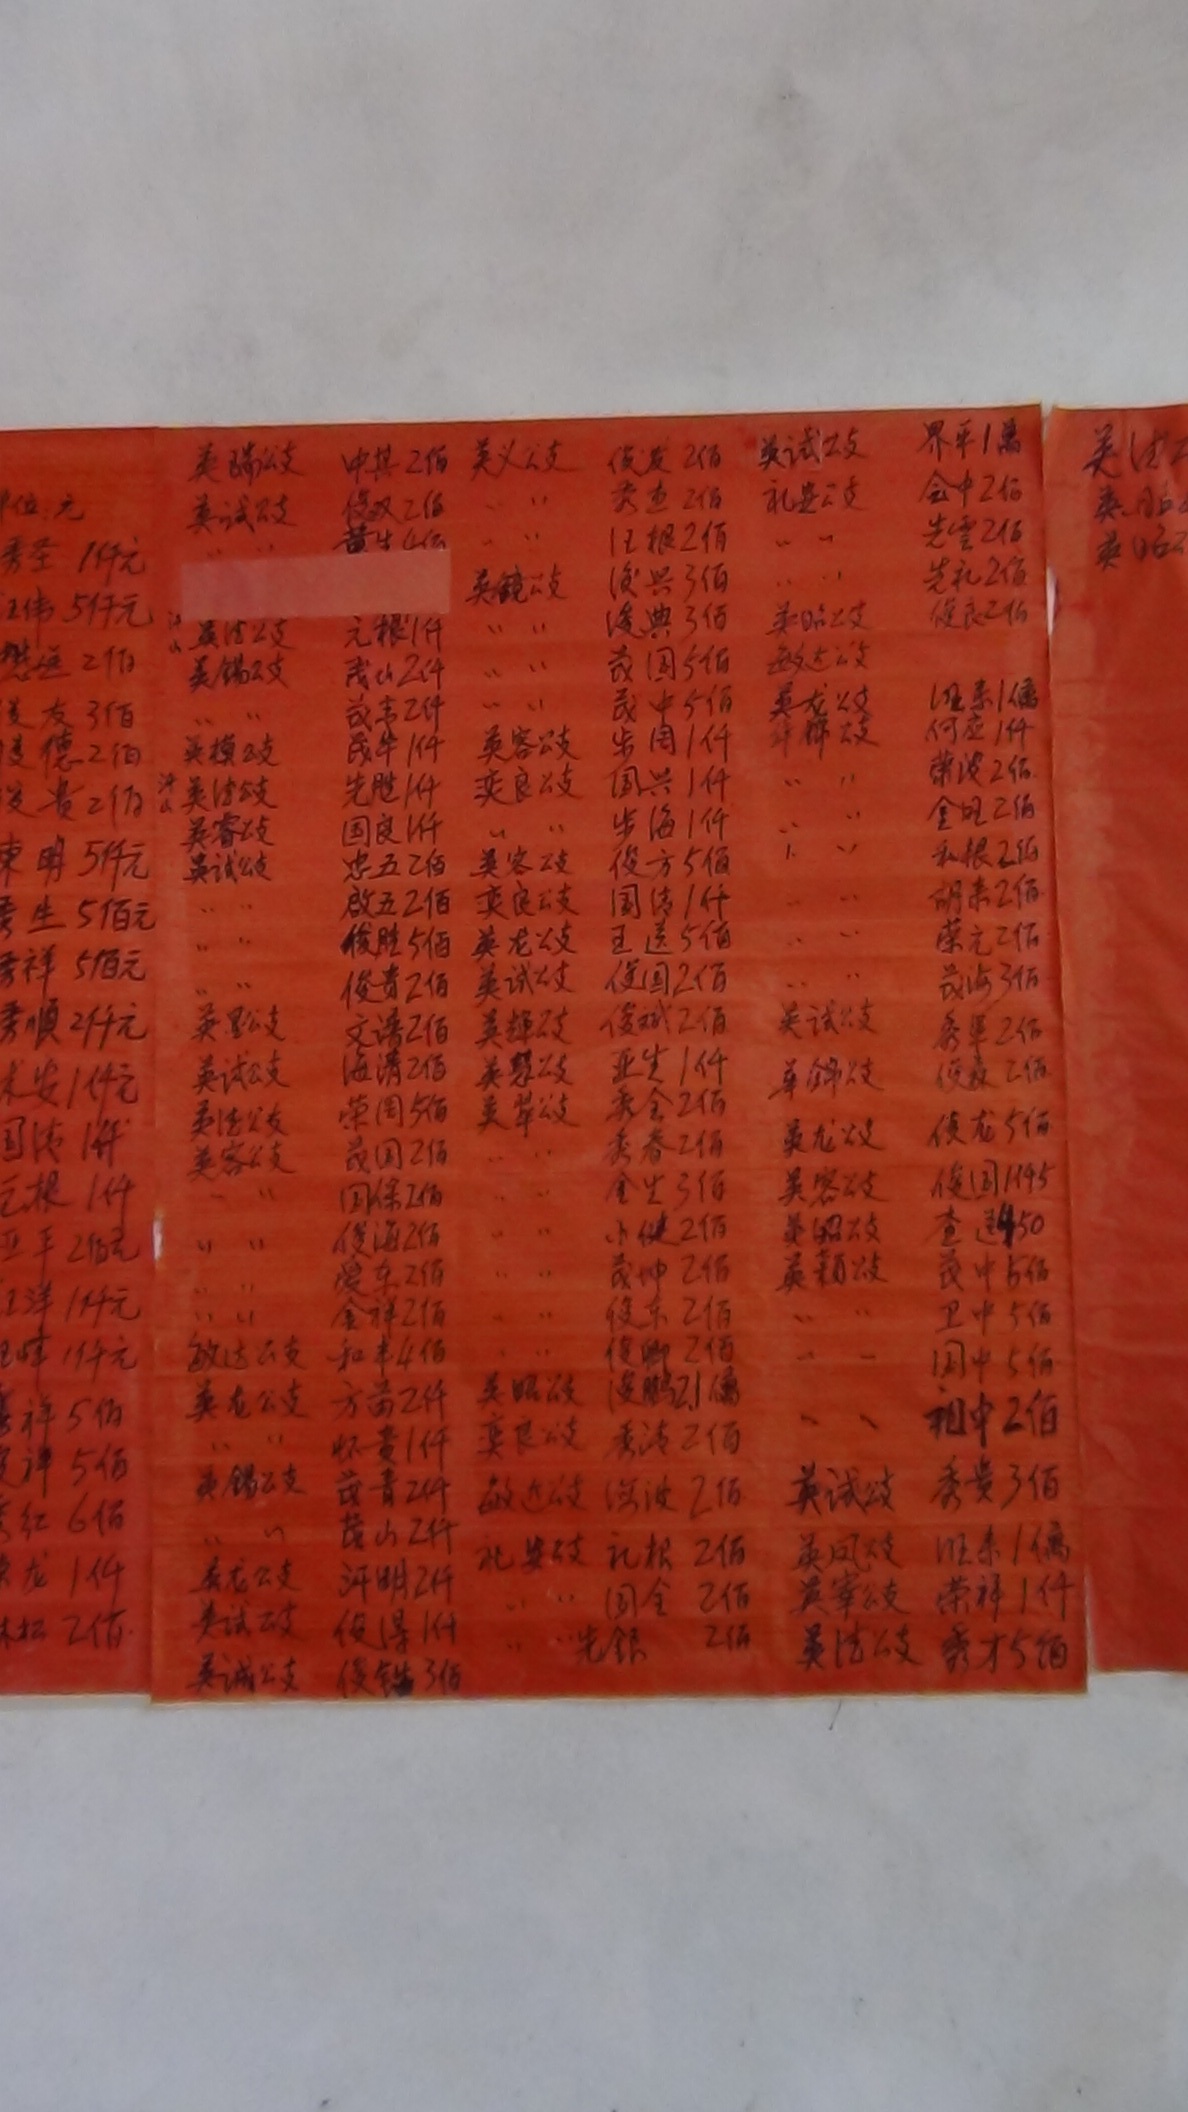 单位:元
秀圣 1仟元
汪伟 5仟元
2佰
俊友 3佰
俊德 2佰
俊贵 2佰
東明 5仟元
秀生 5佰元
秀祥 5佰元
秀顺 2仟元
1仟元
国涛 1仟
元根 1仟
亚平 2佰元
汪洋 1仟元
1仟元
秀祥 5佰
祥 5佰
秀红 6佰
龙 1仟
松 2佰
英瑞公支 中其 2佰
英试公支 俊双 2佰
〃 〃 黄生 4佰
英法公支 元根 1仟
英锡公支 茂山 2仟
〃 〃 茂韦 2仟
英模公支 民华 1仟
英法公支 先胜 1仟
英睿公支 国良 1仟
英试公支 忠五 2佰
〃 〃 啟五 2佰
〃 〃 俊胜 5佰
〃 〃 俊贵 2佰
英公支 文谱 2佰
英试公支 海清 2佰
英法公支 荣周 5佰
英容公支 茂国 2佰
〃 〃 国保 2佰
〃 〃 俊海 2佰
〃 〃 爱东 2佰
〃 〃 金祥 2佰
敏达公支 和丰 4佰
英龙公支 方苗 2仟
〃 〃 怀贵 1仟
英锡公支 茂青 2仟
〃 〃 茂山 2仟
英龙公支 汗明 2仟
英试公支 俊得 1仟
英诚公支 俊锆 3佰
英义公支 俊发 2佰
〃 〃 秀杰 2佰
〃 〃 汪根 2佰
英镜公支 俊兴 3佰
〃 〃 俊典 3佰
〃 〃 茂国 5佰
〃 〃 茂中 5佰
英容公支 步周 1仟
奕良公支 国兴 1仟
〃 〃 步海 1仟
英容公支 俊方 5佰
奕良公支 国涛 1仟
英龙公支 王送 5佰
英试公支 俊国 2佰
英辉公支 俊斌 2佰
英慧公支 亚生 1仟
英翠公支 秀全 2佰
〃 〃 秀春 2佰
〃 〃 金生 3佰
〃 〃 小健 2佰
〃 〃 茂坤 2佰
〃 〃 俊东 2佰
〃 〃 俊卿 2佰
英昭公支 俊鹏 2.1萬
奕良公支 秀涛 2佰
敏达公支 波 2佰
礼安公支 礼根 2佰
〃 〃 国全 2佰
〃 〃 先银 2佰
英试公支 界平 1萬
礼公支 会中 2佰
〃 〃 先雲 2佰
〃 〃 先礼 2佰
英昭公支 俊良 2佰
敏达公支
英龙公支 旺来 1萬
公支 何应 1仟
〃 〃 荣波 2佰
〃 〃 金旺 2佰
〃 〃 和根 2佰
〃 〃 胡来 2佰
〃 〃 荣元 2佰
〃 〃 茂海 3佰
英试公支 秀军 2佰
公支 俊 2佰
英龙公支 俊龙 5佰
英容公支 俊国 1195
英昭公支 查送 450
英颖公支 茂中 5佰
〃 〃 卫中 5佰
〃 〃 国中 5佰
〃 〃 祖中 2佰
英试公支 秀贵 3佰
英凤公支 旺来 1萬
英宰公支 荣祥 1仟
英法公支 秀才 5佰
英法
英
英昭